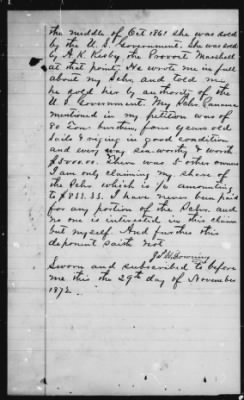 the middle of Oct 1861 she was sold
by the U. S. Government. She was sold
by A. K. Kirby, the Provost Marshall
at that point. He wrote me in full
about my Schr. and told me
he sold her by authority of the
U. S. Government. My Schr.
mentioned in my petition was of
80 Tons burthen, four years old
Sails & riging in good condition
and every way seaworthy & worth
$5000.00. There was 5 other owners
I am only claiming my share of
the Schr. which is 1/6 amounting
to $833.33. I have never been paid
for any portion of the Schr. and
no one is interested in this claim
but myself. And further this
deponent saith not
Downing
Sworn and subscribed to before
me this the 29th day of November
1872.